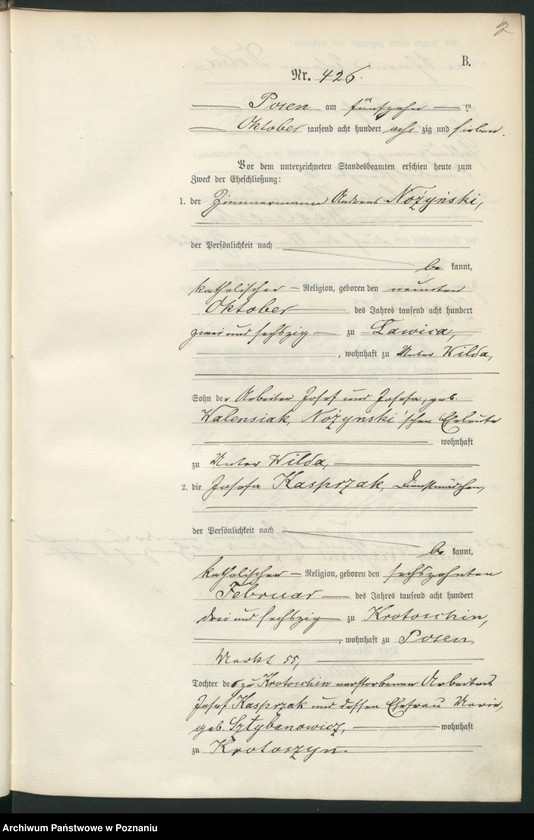 B.
Nr. 426.
Posen am fünfzehn ten
Oktober tausend acht hundert acht zig und sieben.
Vor dem unterzeichneten Standesbeamten erschien heute zum
Zweck der Eheschließung:
1. der Zimmermann Andreas Nożyński,
der Persönlichkeit nach
be kannt,
katholischer Religion, geboren den neunten
Oktober des Jahres tausend acht hundert
zwei und sechszig zu Lawica,
, wohnhaft zu Unter Wilda,
Sohn der Arbeiter Josef und Josefa, geb.
Walensiak, Nożynski'schen Eheleute
wohnhaft
zu Unter Wilda,
2. die Josefa Kasprzak, Dienstmädchen,
der Persönlichkeit nach
be kannt,
katholischer Religion, geboren den sechszehnten
Februar des Jahres tausend acht hundert
drei und sechszig zu Krotoschin,
, wohnhaft zu Posen,
Markt 55,
Tochter des zu Krotoschin verstorbenen Arbeiters
Josef Kasprzak und dessen Ehefrau Marie,
geb. Sztybanowicz, wohnhaft
zu Krotoszyn.
Archiwum Państwowe w Poznaniu